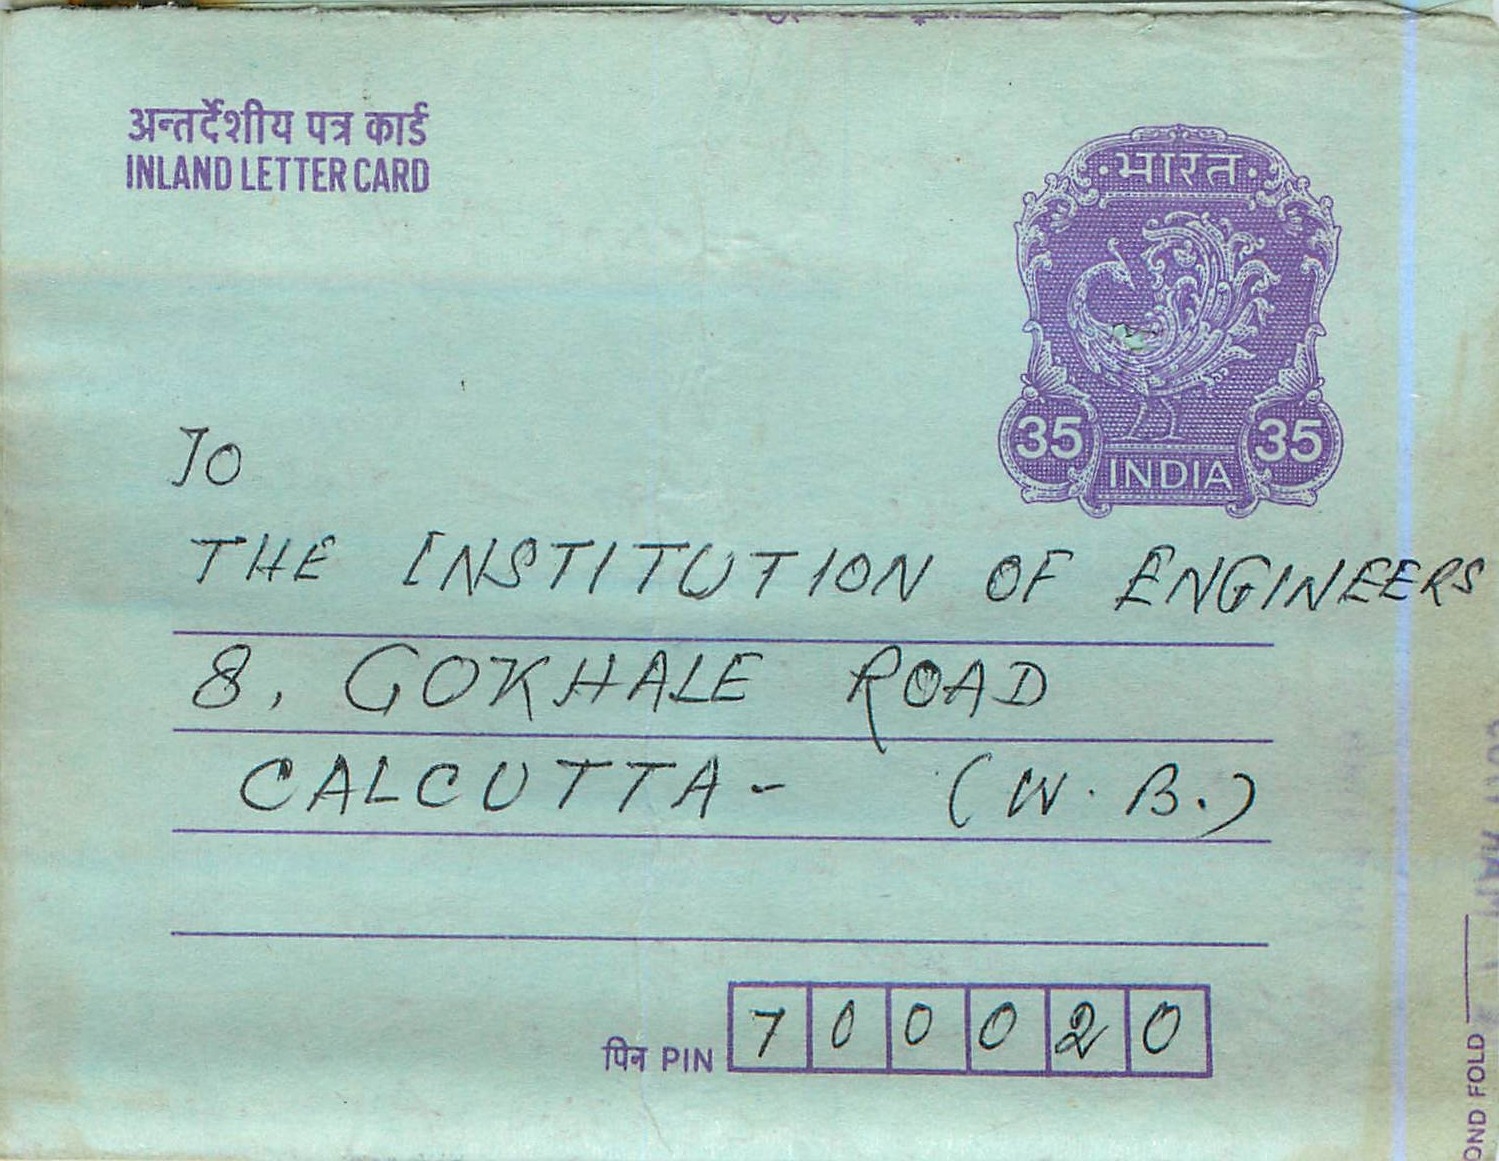 अन्तर्देशीय पत्र कार्ड
INLAND LETTER CARD
भारत
35 35
INDIA
TO
THE INSTITUTION OF ENGINEERS
8, GOKHALE ROAD
CALCUTTA - (W. B.)
पिन PIN 700020
OND FOLD